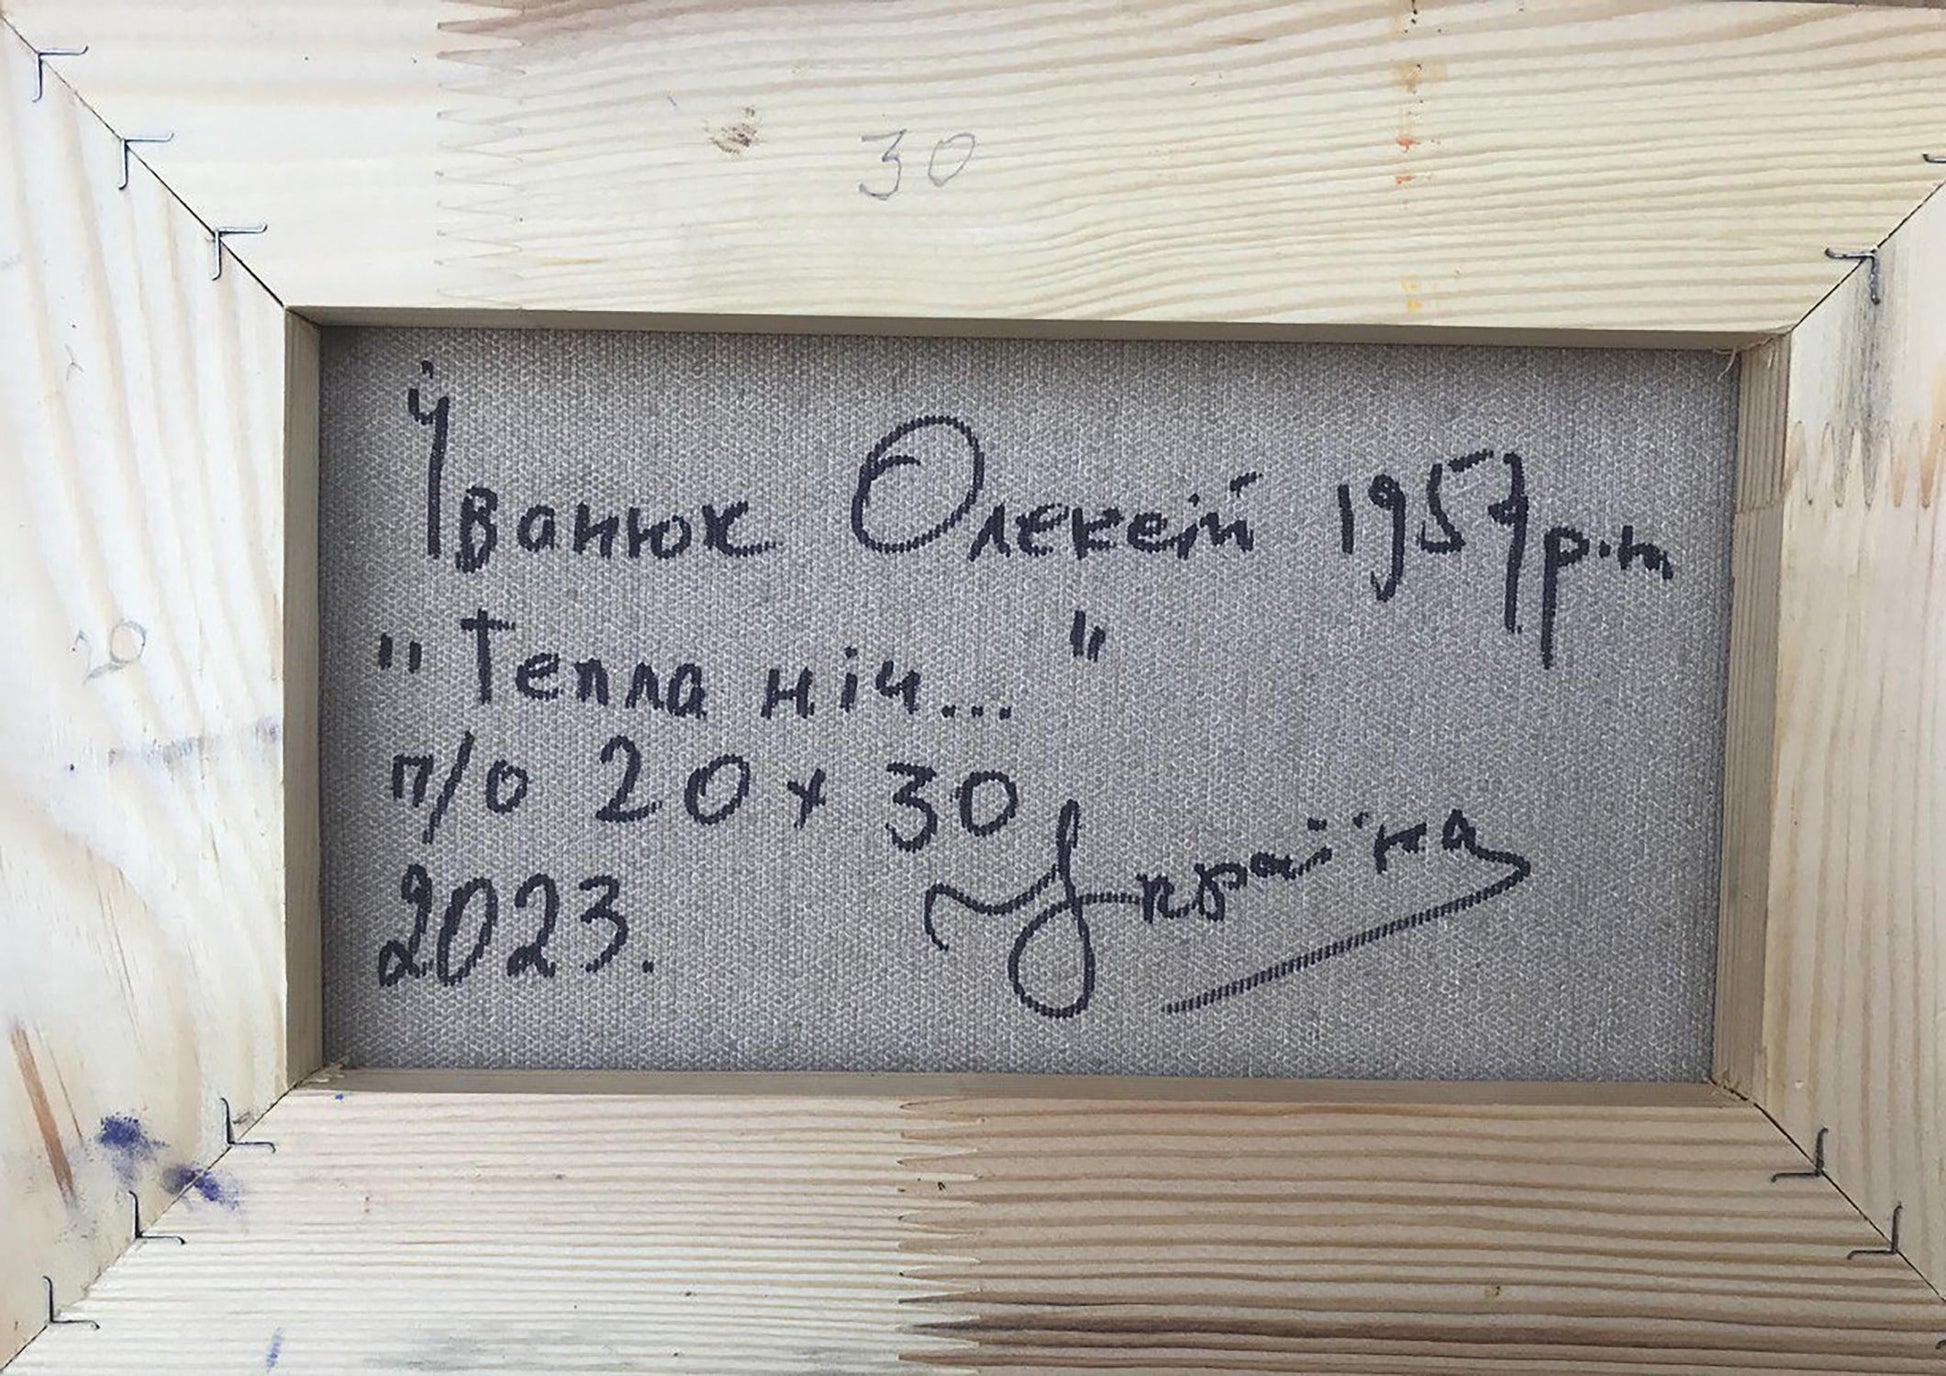 30
Іванюк Олексій 1957 р.н
"Тепла ніч..."
20
п/о 20 х 30
2023.
Україна